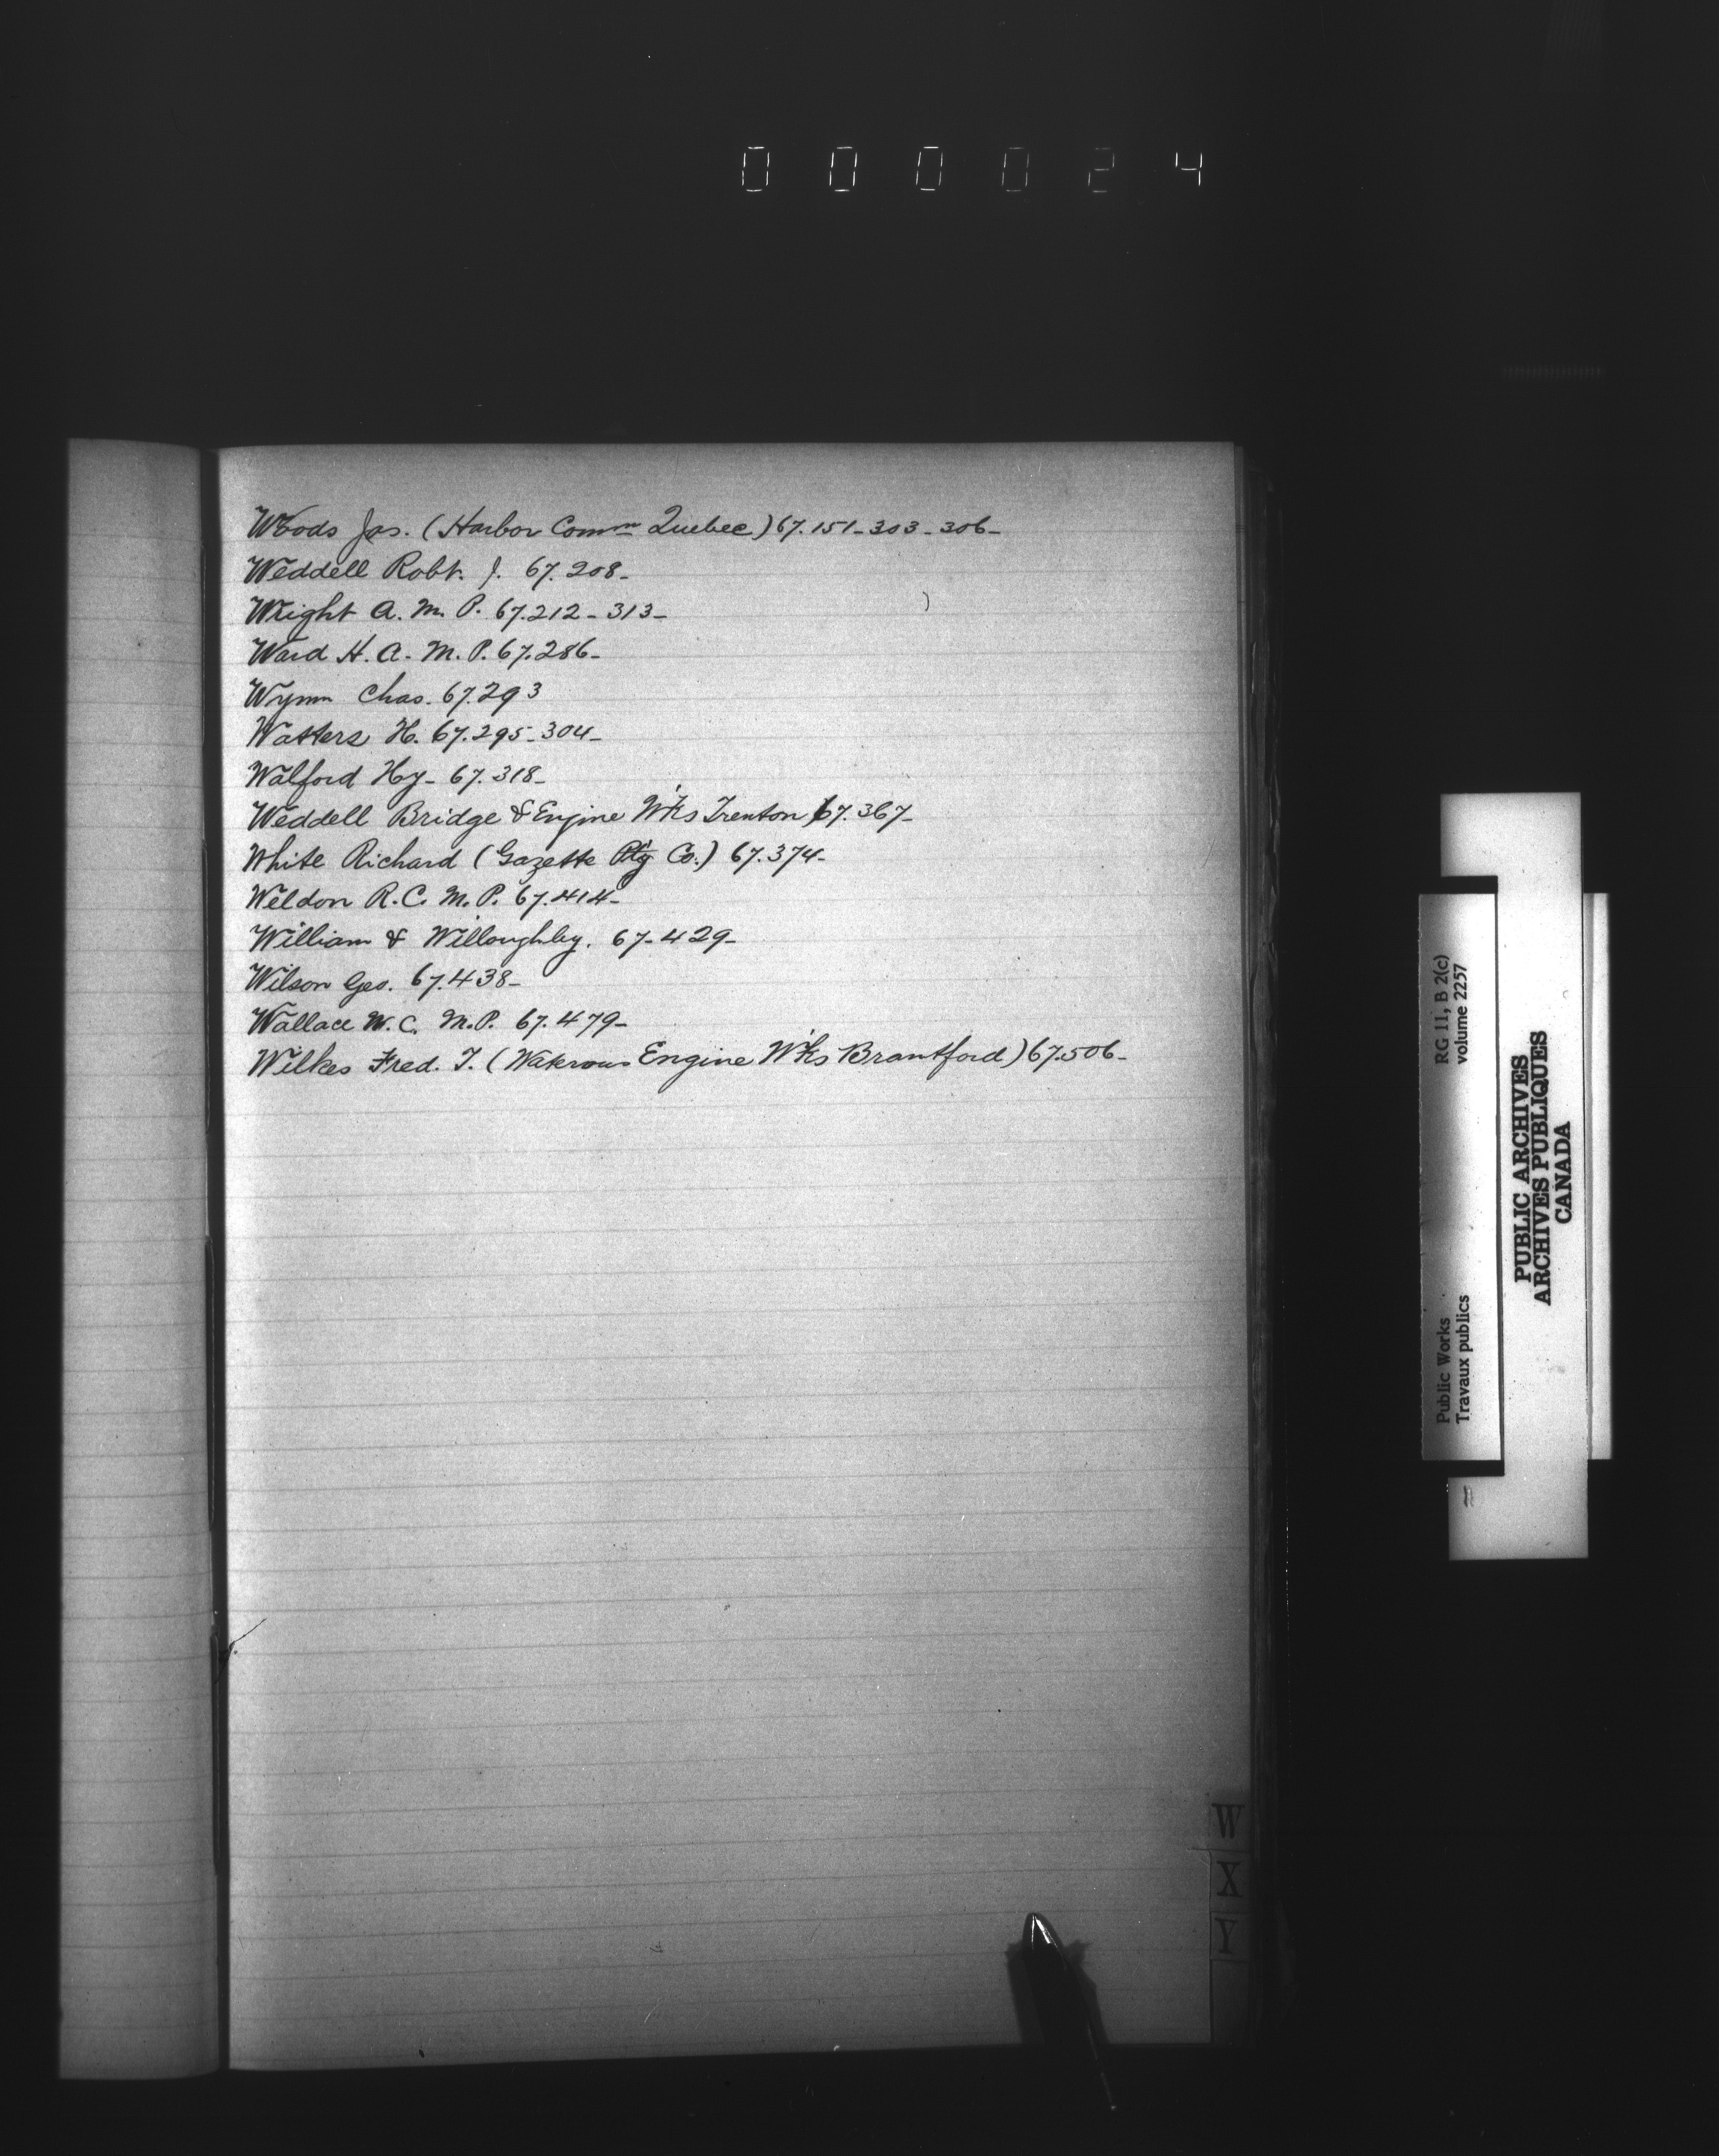 000024
Woods Jas. (Harbor Comm Quebec) 67.151-303-306-
Weddell Robt. J. 67.208-
Wright A. M. P. 67.212-313-
Ward H. A. M. P. 67.286-
Wynn Chas. 67.293
Watters H. 67.295-304-
Walford Hy- 67.318-
Weddell Bridge & Engine W'ks Trenton 67.367-
White Richard (Gazette Ptg Co.) 67.374-
Weldon R. C. M. P. 67.414-
William & Willoughby. 67-429-
Wilson Geo. 67.438-
Wallace W. C. M.P. 67.479-
Wilkes Fred. T. (Waterous Engine W'ks Brantford) 67.506-
W
X
Y
RG 11, B 2(c)
volume 2257
Public Works
Travaux publics
PUBLIC ARCHIVES
ARCHIVES PUBLIQUES
CANADA